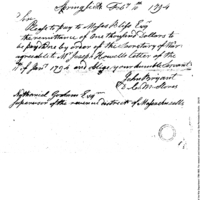 Springfield Feb. 6 1794
Sir
Please to pay to Moses Bliss Esqr
the remittance of One thousand Dollars to
be paid me by order of the Secretary of War
agreeable to Mr. Joseph Howells Letter of the
11 of Jany 1794 and oblige your humble Servant
John Bryant
Nathaniel Gorham Esqr
supervisor of the revenue district of Massachusetts